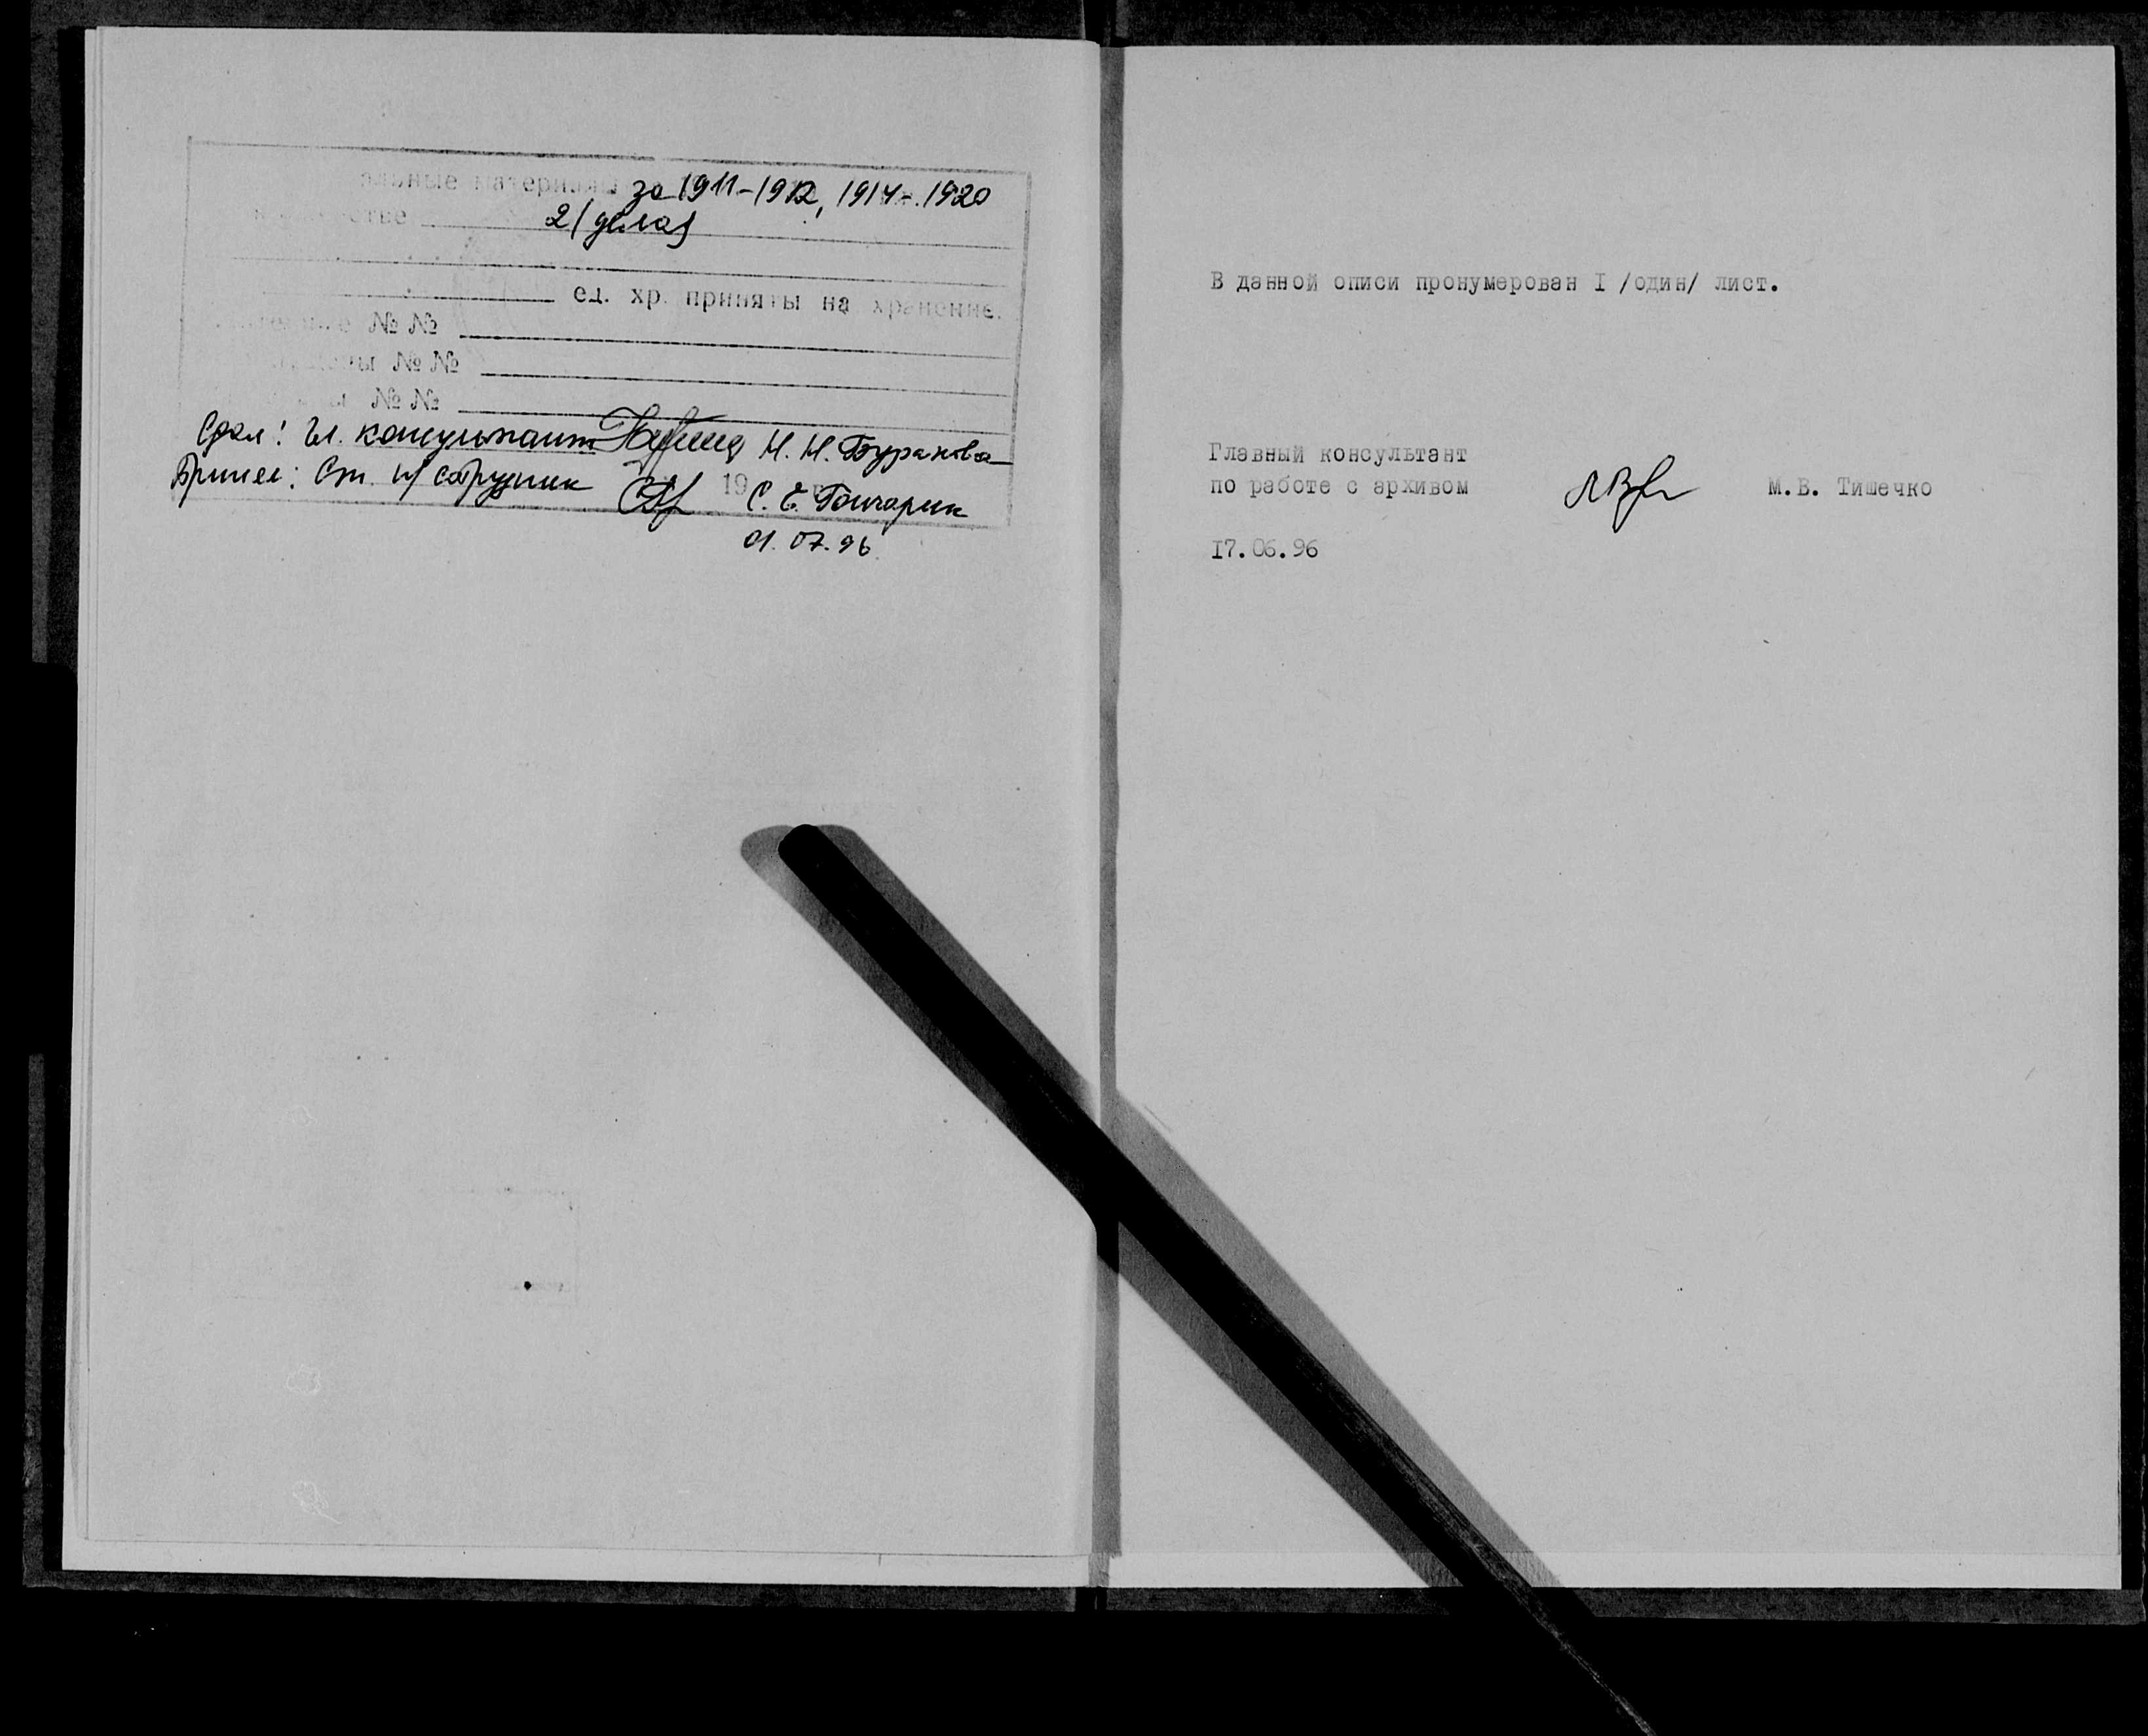 материалы за 1911-1912, 1914-1920
2 (дела)
ед. хр. приняты на хранение.
№ №
№ №
№ №
Сдал: Гл. консультант Н. Н. Буракова
Принял: Ст. н/сотрудник 19 С. Е. Гончарик
01.07.96
В данной описи пронумерован I /один/ лист.
Главный консультант
по работе с архивом М.В. Тишечко
17.06.96